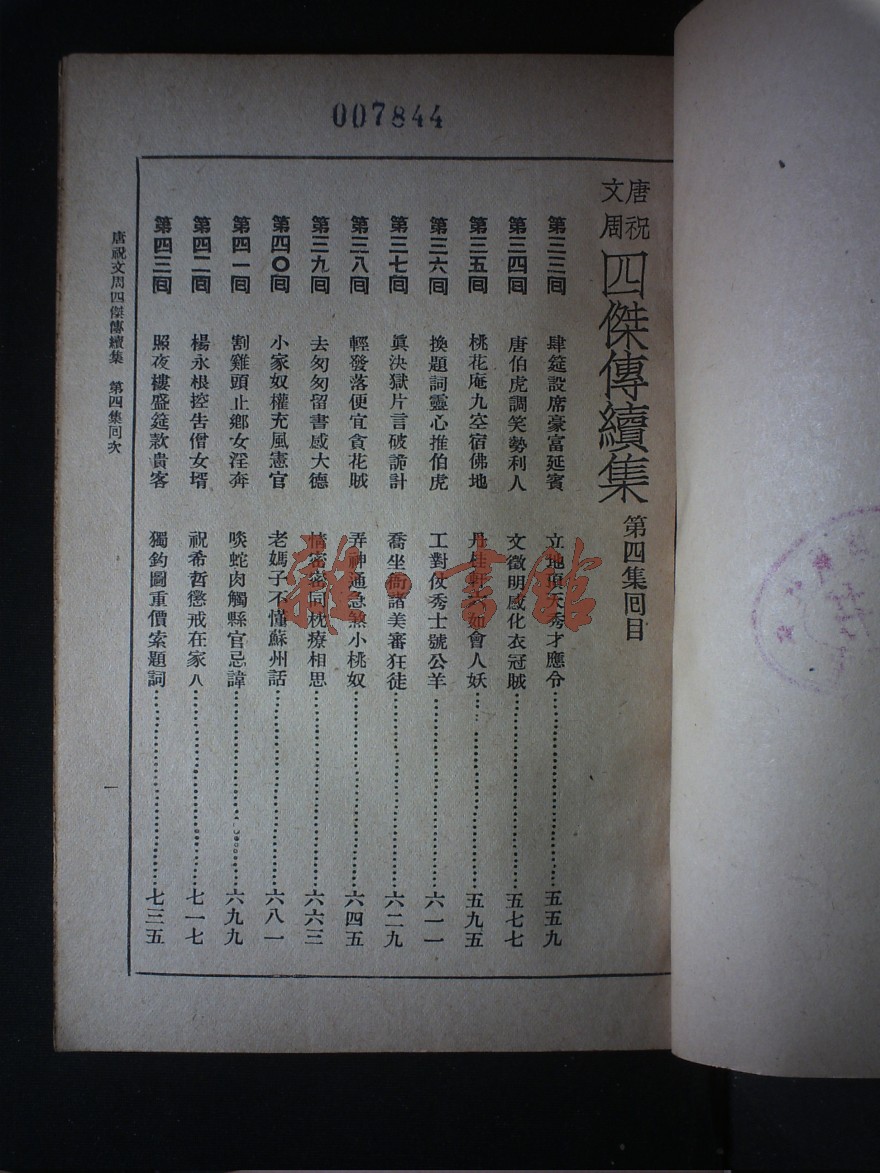 007844
唐祝文周四傑傳續集 第四集回目
第三三回 肆筵設席豪富延賓 立地頂天秀才應令 五五九
第三四回 唐伯虎調笑勢利人 文徵明感化衣冠賊 五七七
第三五回 桃花庵九空宿佛地 丹桂軒六如會人妖 五九五
第三六回 換題詞靈心推伯虎 工對仗秀士號公羊 六一一
第三七回 眞決獄片言破詭計 喬坐衙諸美審狂徒 六二九
第三八回 輕發落便宜貪花賊 弄神通急煞小桃奴 六四五
第三九回 去匆匆留書感大德 情密密同枕療相思 六六三
第四〇回 小家奴權充風憲官 老媽子不懂蘇州話 六八一
第四一回 割雞頭止鄉女淫奔 啖蛇肉觸縣官忌諱 六九九
第四二回 楊永根控告僧女壻 祝希哲懲戒在家人 七一七
第四三回 照夜樓盛筵款貴客 獨釣圖重價索題詞 七三五
唐祝文周四傑傳續集 第四集回次
一
雜·書館